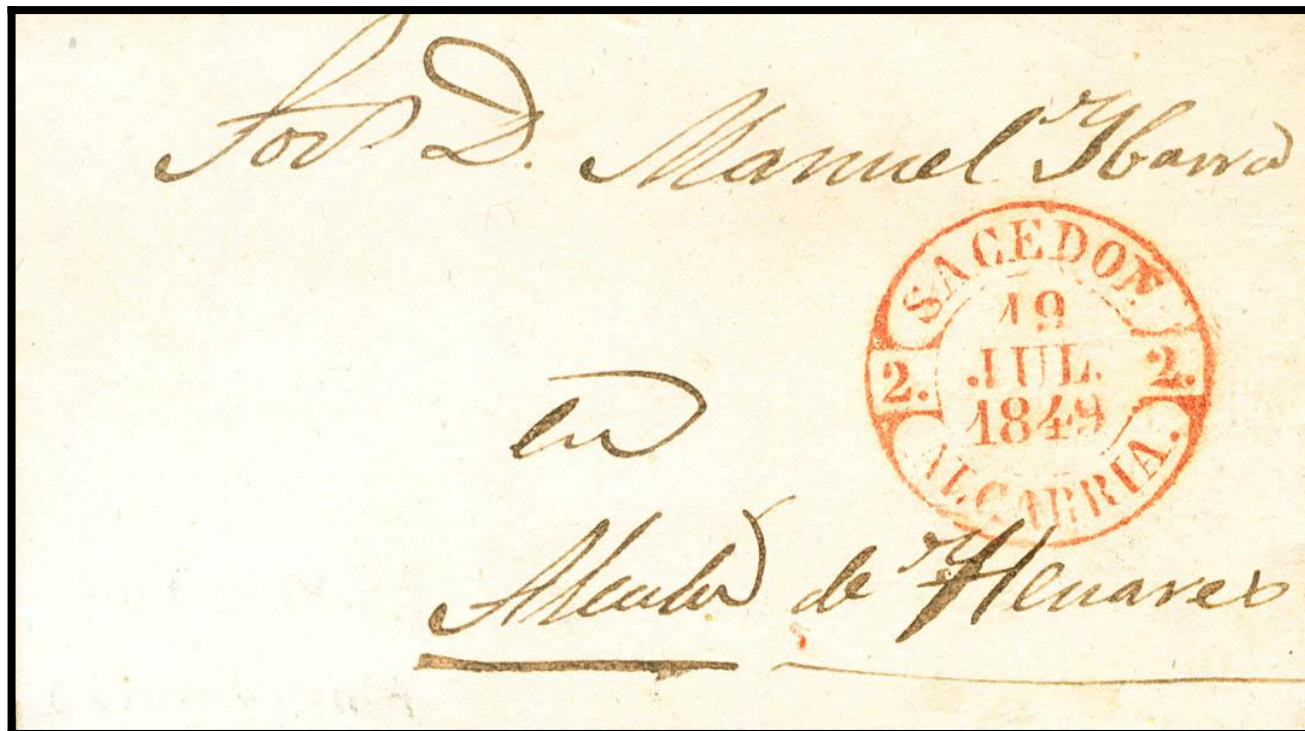 Sor. D. Manuel Ybarra
SACEDON
2. 19 2.
JUL.
1849
ALCARRIA.
en
Alcala de Henares